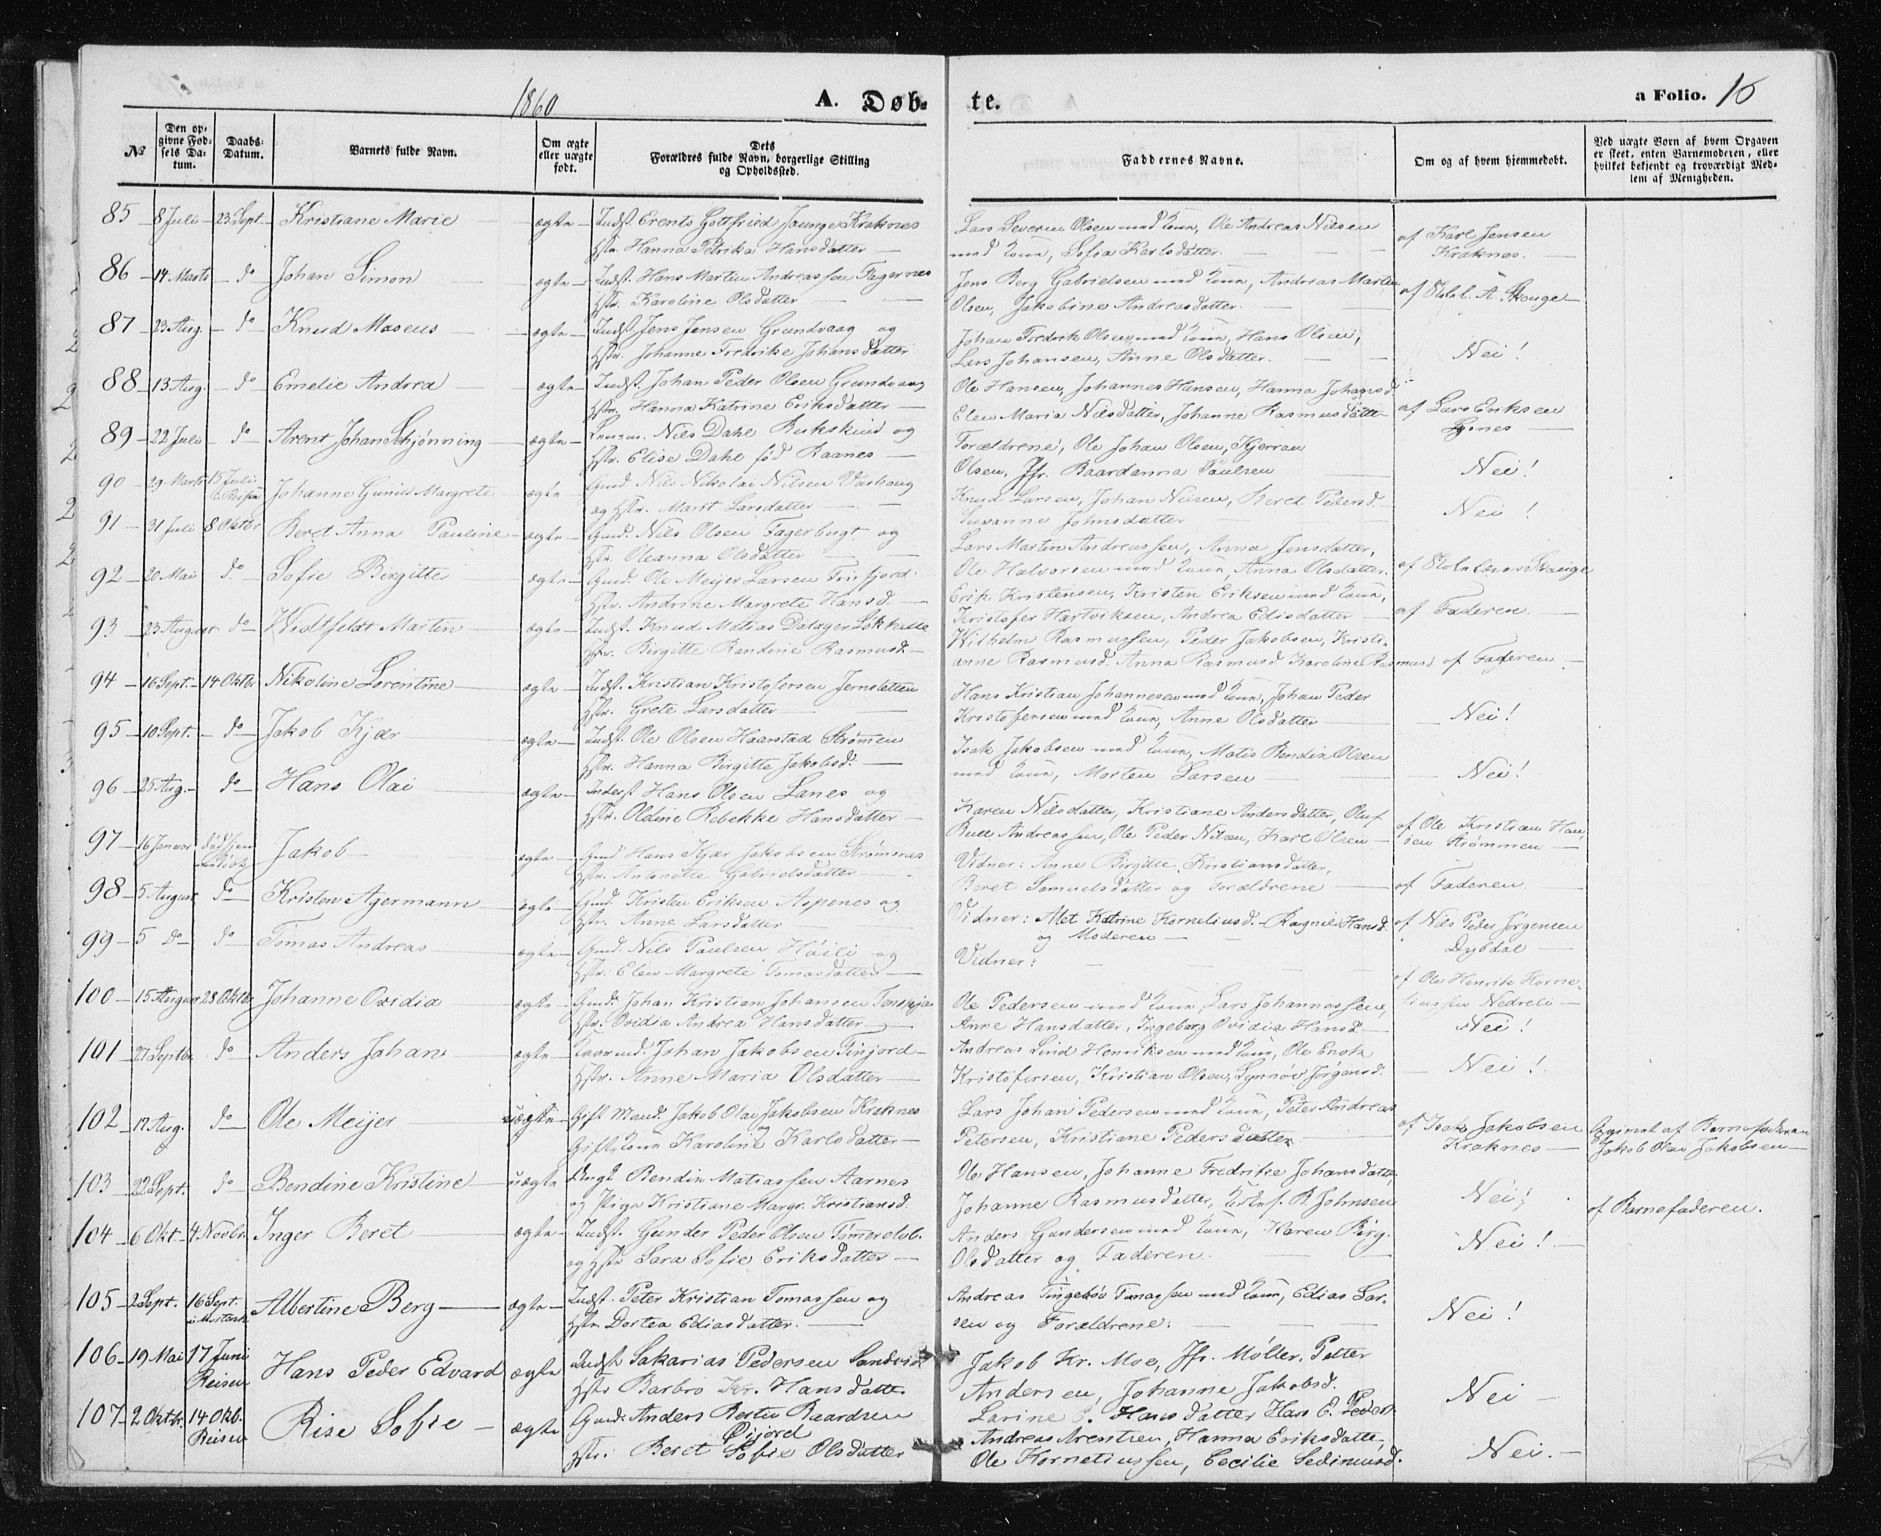 1860
A. Døb-
te.
a Folio. 16
№
Den op-
givne Fød-
sels Da-
tum.
Daabs-
Datum.
Barnets fulde Navn.
Om ægte
eller uægte
født.
Dets
Forældres fulde Navn, borgerlige Stilling
og Opholdssted.
Faddernes Navne.
Om og af hvem hjemmedøbt.
Ved uægte Børn af hvem Opgaven
er skeet, enten Barnemoderen, eller
hvilket bekjendt og troværdigt Med-
lem af Menigheden.
85 8 Juli 23 Sept. Kristiane Marie ægte Indst. Erents Gottfried Kraknes
Hstr. Hanna Petrika Hansdatter
Lars Severin Olsen med Kone, Ole Andreas Nilsen
med Kone, Sofia Karlsdatter
af Karl Jensen
Kraknes.
86 14 Marts do Johan Simon ægte Indst. Hans Martin Andreassen Fagernes
Hstr. Karoline Olsdatter
Jens Berg Gabrielsen med Kone, Andreas Martin
Olsen, Jakobine Andreasdatter.
af A. Skouge
87 23 Aug. do Knud Maseus ægte Indst. Jens Jensen Grundvaag og
Hstr. Johanne Fredrike Johansdatter
Johan Fredrik Olsen med Kone, Hans Olsen,
Lars Johansen, Anne Olsdatter.
Nei!
88 13 Aug. do Emelie Andrea ægte Indst. Johan Peder Olsen Grundvaag
Hstr. Hanna Katrine Eriksdatter
Ole Hansen, Johannes Hansen, Hanna Johansd.
Elen Maria Nilsdatter, Johanne Rasmusdatter
af Lars Eriksen
89 22 Juli do Arent Johan Schjønning ægte Nils Dahl og
Hstr. Elise Dahl fød Raanes
Forældrene, Ole Johan Olsen,
Olsen, Jfr. Baardanna Paulsen
Nei!
90 29 Marts 15 Juli Johanne Gunild Margrete ægte Gmd. Nils Nikolai Nilsen
og Hstr. Marit Larsdatter
Knud Larsen, Johan Nilsen, Beret Pedersd.
Susanne Johnsdatter
Nei!
91 31 Juli 8 Oktbr Beret Anna Pauline ægte Gmd. Nils Olsen Fagerbugt og
Hstr. Oleanna Olsdatter
Lars Martin Andreassen, Anna Jensdatter,
Ole Halvorsen med Kone, Anna Olsdatter.
92 20 Mai do Sofie Birgitte ægte Gmd. Ole Meijer Larsen Finfjord
Hstr. Andrine Margrete Hansd.
Erik Kristensen, Kristen Eriksen med Kone,
Kristofer Hartviksen, Andrea Edisdatter
af Faderen
93 23 August do Widtfeldt Martin ægte Indst. Knud Matias Dalager
Hstr. Birgitte Randine Rasmusd.
Wilhelm Rasmussen, Peder Jakobsen, Kristi-
anne Rasmusd. Anna Rasmusd. Karoline Rasmusd.
af Faderen
94 16 Sept. 14 Oktbr Nikoline Lorentine ægte Indst. Kristian Kristofersen Jernsletten
Hstr. Grete Larsdatter
Hans Kristian Johannesen med Kone, Johan Peder
Kristofersen med Kone, Anne Olsdatter
Nei!
95 10 Sept. do Jakob Kjær ægte Indst. Ole Olsen Haarstad Strømen
Hstr. Hanna Birgitte Jakobsd.
Isak Jakobsen med Kone, Matis Bendix Olsen
med Kone, Morten Larsen
Nei!
96 25 Aug. do Hans Olai ægte Inderst Hans Olsen Lanes og
Hstr. Oldine Rebekke Hansdatter
Karen Nilsdatter, Kristiane Andersdatter, Oluf
Bull Andreassen, Ole Peder Nilsen, Karl Olsen
af Ole Kristian Han-
sen Strømmen
97 16 Januar Jakob ægte Gmd. Hans Kjær Jakobsen Strømnes
Hstr. Antonette Gabrielsdatter
Vidner: Anne Birgitte Kristiansdatter,
Beret Samuelsdatter og Forældrene
af Faderen
98 5 August do Kristen Agermann ægte Gmd. Kristen Eriksen Aspenes og
Hstr. Anne Larsdatter
Vidner: Met Katrine Korneliusd. Ragnil Hansd.
og Moderen
af Nils Peder Jørgensen
Dybdal
99 5 do do Tomas Andreas ægte Gmd. Nils Paulsen Høili og
Hstr. Elen Margrete Tomasdatter
Vidner:
af Ole Henrik Korne-
liussen Nedreli
100 15 August 28 Oktbr Johanne Ovidia ægte Gmd. Johan Kristian Johansen
Hstr. Ovidia Andrea Hansdatter
Ole Pedersen med Kone, Lars Johannessen,
Anne Hansdatter, Ingeborg Ovidia Hansd.
Nei!
101 27 Septbr do Anders Johan ægte Johan Jakobsen Finjord
Hstr. Anne Maria Olsdatter
Andreas Lind Henriksen med Kone, Ole Enok
Kristofersen, Kristian Olsen, Synnøv Jørgensd.
Nei!
102 17 Aug. do Ole Meijer uægte Gift Mand Jakob Olai Jakobsen Kraknes
og
Gift Kone Karoline Karlsdatter
Lars Johan Pedersen med Kone, Peter Andreas
Petersen, Kristiane Pedersdatter
af Isak Jakobsen
Kraknes
Opgivet af Barnefaderen
Jakob Olai Jakobsen
103 22 Sept. do Bendine Kristine uægte Ungk. Bendix Matiassen Aarnes
og Pige Kristiane Margr. Kristiansd.
Ole Hansen, Johanne Fredrike Johansdatter,
Johanne Rasmusdatter, B. Johnsen
Nei!
af Barnefaderen.
104 6 Okt. 4 Novbr. Inger Beret ægte Indst. Gunder Peder Olsen Tømerelv.
og Hstr. Sara Sofie Eriksdatter
Anders Gundersen med Kone, Karen Birg.
Olsdatter og Faderen.
Nei!
105 2 Sept. 16 Sept. Albertine Berg ægte Indst. Peter Kristian Tomassen og
Hstr. Dortea Ediasdatter.
Andreas Tomassen med Kone, Edias Lar-
sen og Forældrene.
Nei!
106 19 Mai 17 Juni
Reisen Hans Peder Edvard ægte Indst. Sakarias Pedersen Sandvik
Hstr Barbro Kr. Hansdatt.
Jakob Kr. Moe, Jfr. Møller, Petter
Andersen, Johanne Jakobsd.
Nei
107 2 Oktbr. 14 Okb.
Reisen Rise Sofie ægte Gmd. Anders Baardsen
Oxfjord
Hstr. Beret Sofie Olsdatter
Larine P. Hansdatter Hans E. Peders.
Andreas Arentsen, Hanna Eriksdatt.
Ole Korneliussen, Cecilie
Nei.